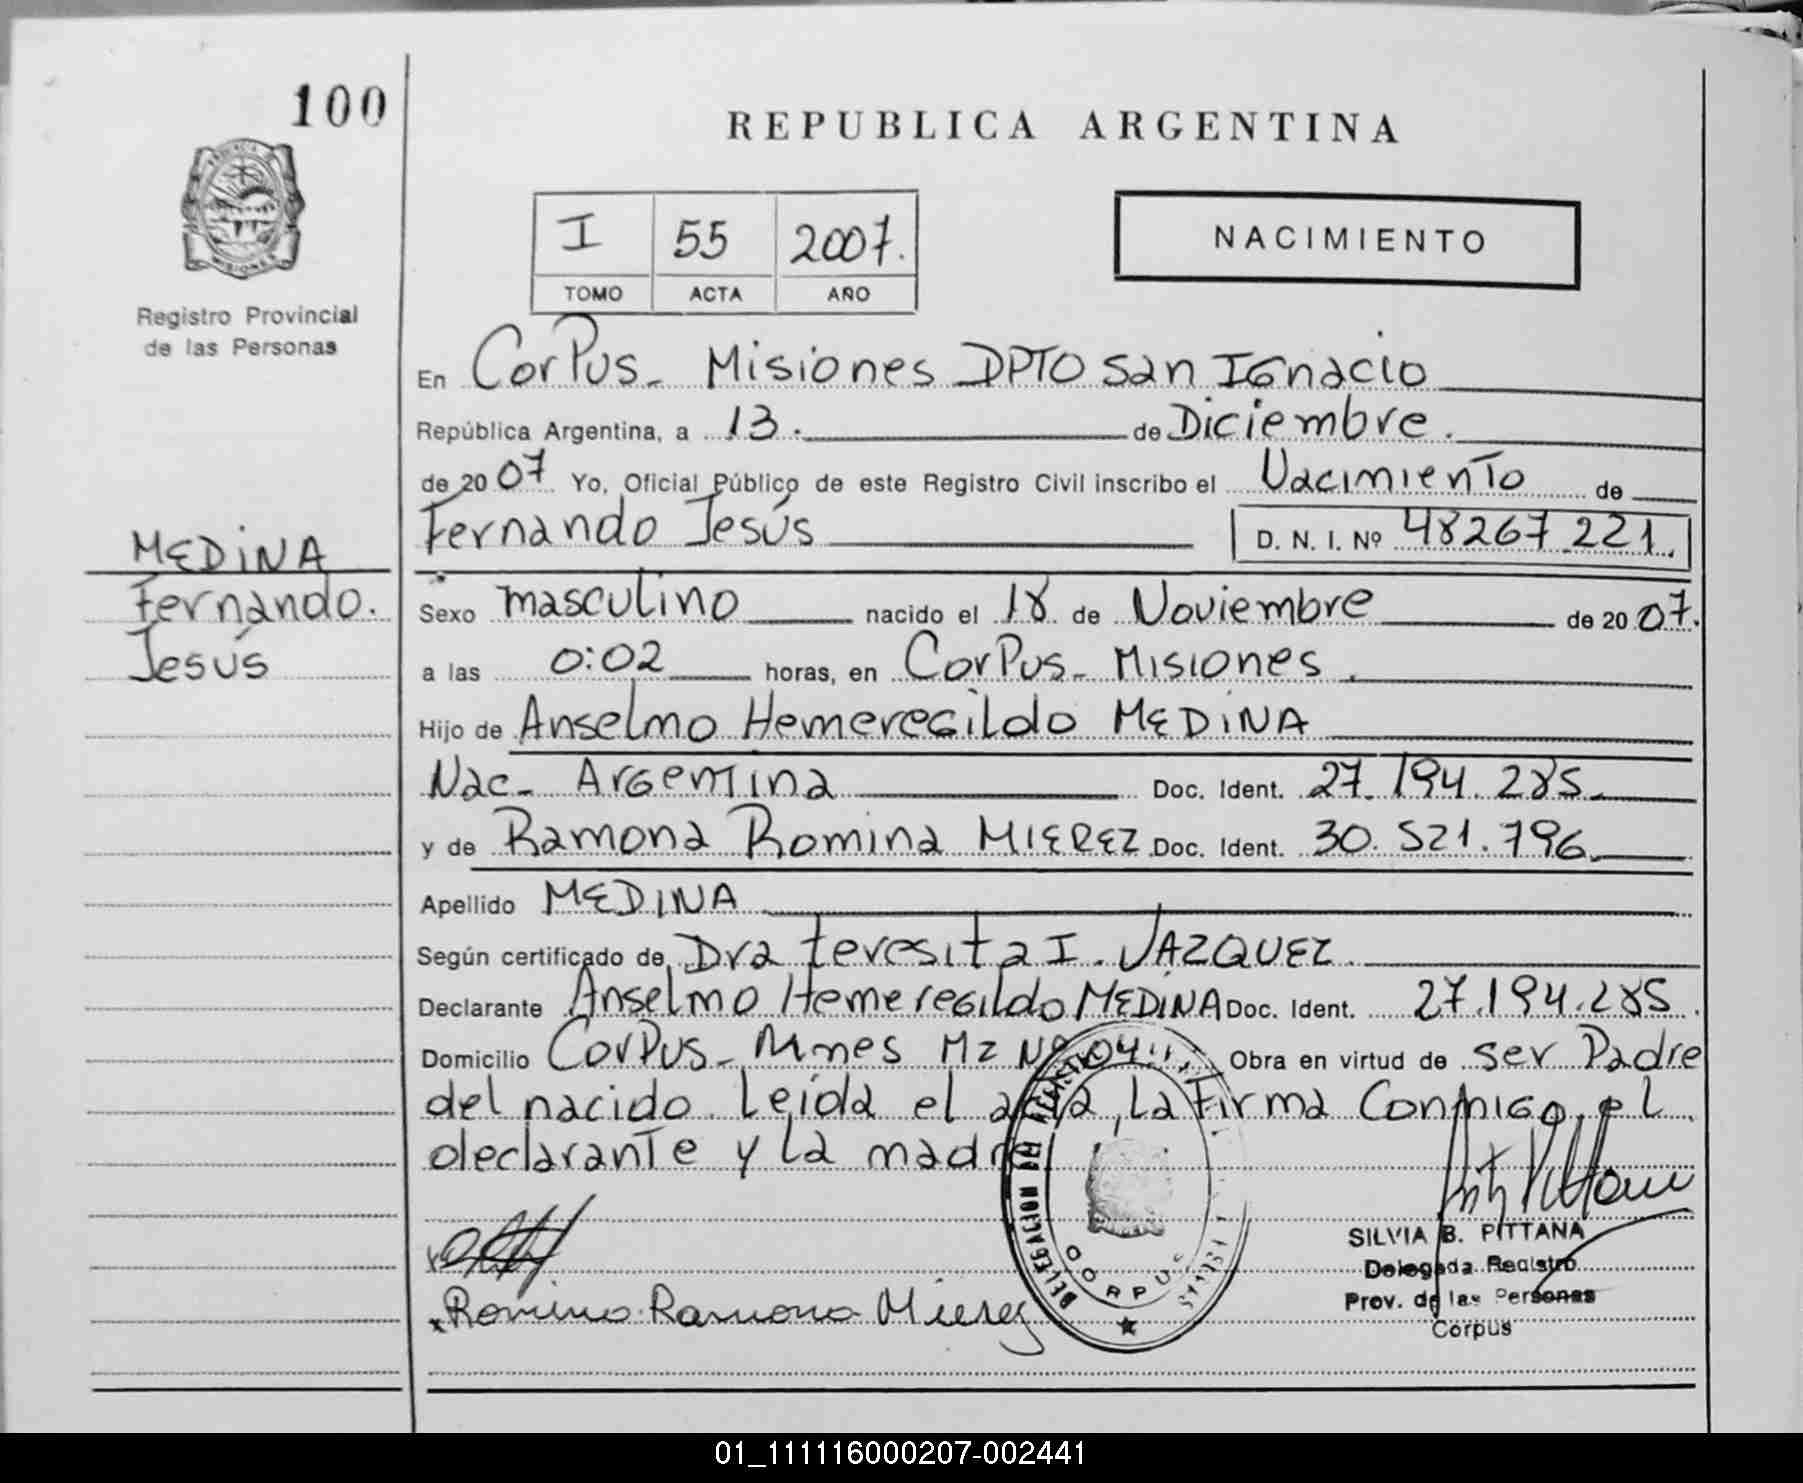 100
REPUBLICA ARGENTINA
I 55 2007.
TOMO ACTA AÑO
NACIMIENTO
MISIONES
Registro Provincial
de las Personas
En CorPus - Misiones DPTO San IGnacio
República Argentina, a 13. de Diciembre.
de 2007 Yo, Oficial Público de este Registro Civil inscribo el Nacimiento de
Fernando Jesús D. N. I. Nº 48267.221.
MEDINA
Fernando.
Jesús
Sexo masculino nacido el 18 de Noviembre de 2007.
a las 0:02 horas, en CorPus - Misiones.
Hijo de Anselmo HemereGildo MEDINA
Nac - ArGentina Doc. Ident. 27.194.285.
y de Ramona Romina MIEREZ Doc. Ident. 30.521.796.
Apellido MEDINA
Según certificado de Dra teresita I. VAZQUEZ.
Declarante Anselmo HemereGildo MEDINA Doc. Ident. 27.194.285.
Domicilio CorPus - Mnes Mz Nº 04 Obra en virtud de ser Padre
del nacido. Leída el acta, La Firma ConmiGo, el
declarante y La madre
DELEGACION REGISTRO
CORPUS
Romina Ramona Mierez
SILVIA B. PITTANA
Delegada Registro
Prov. de las Personas
Corpus
01_111116000207-002441